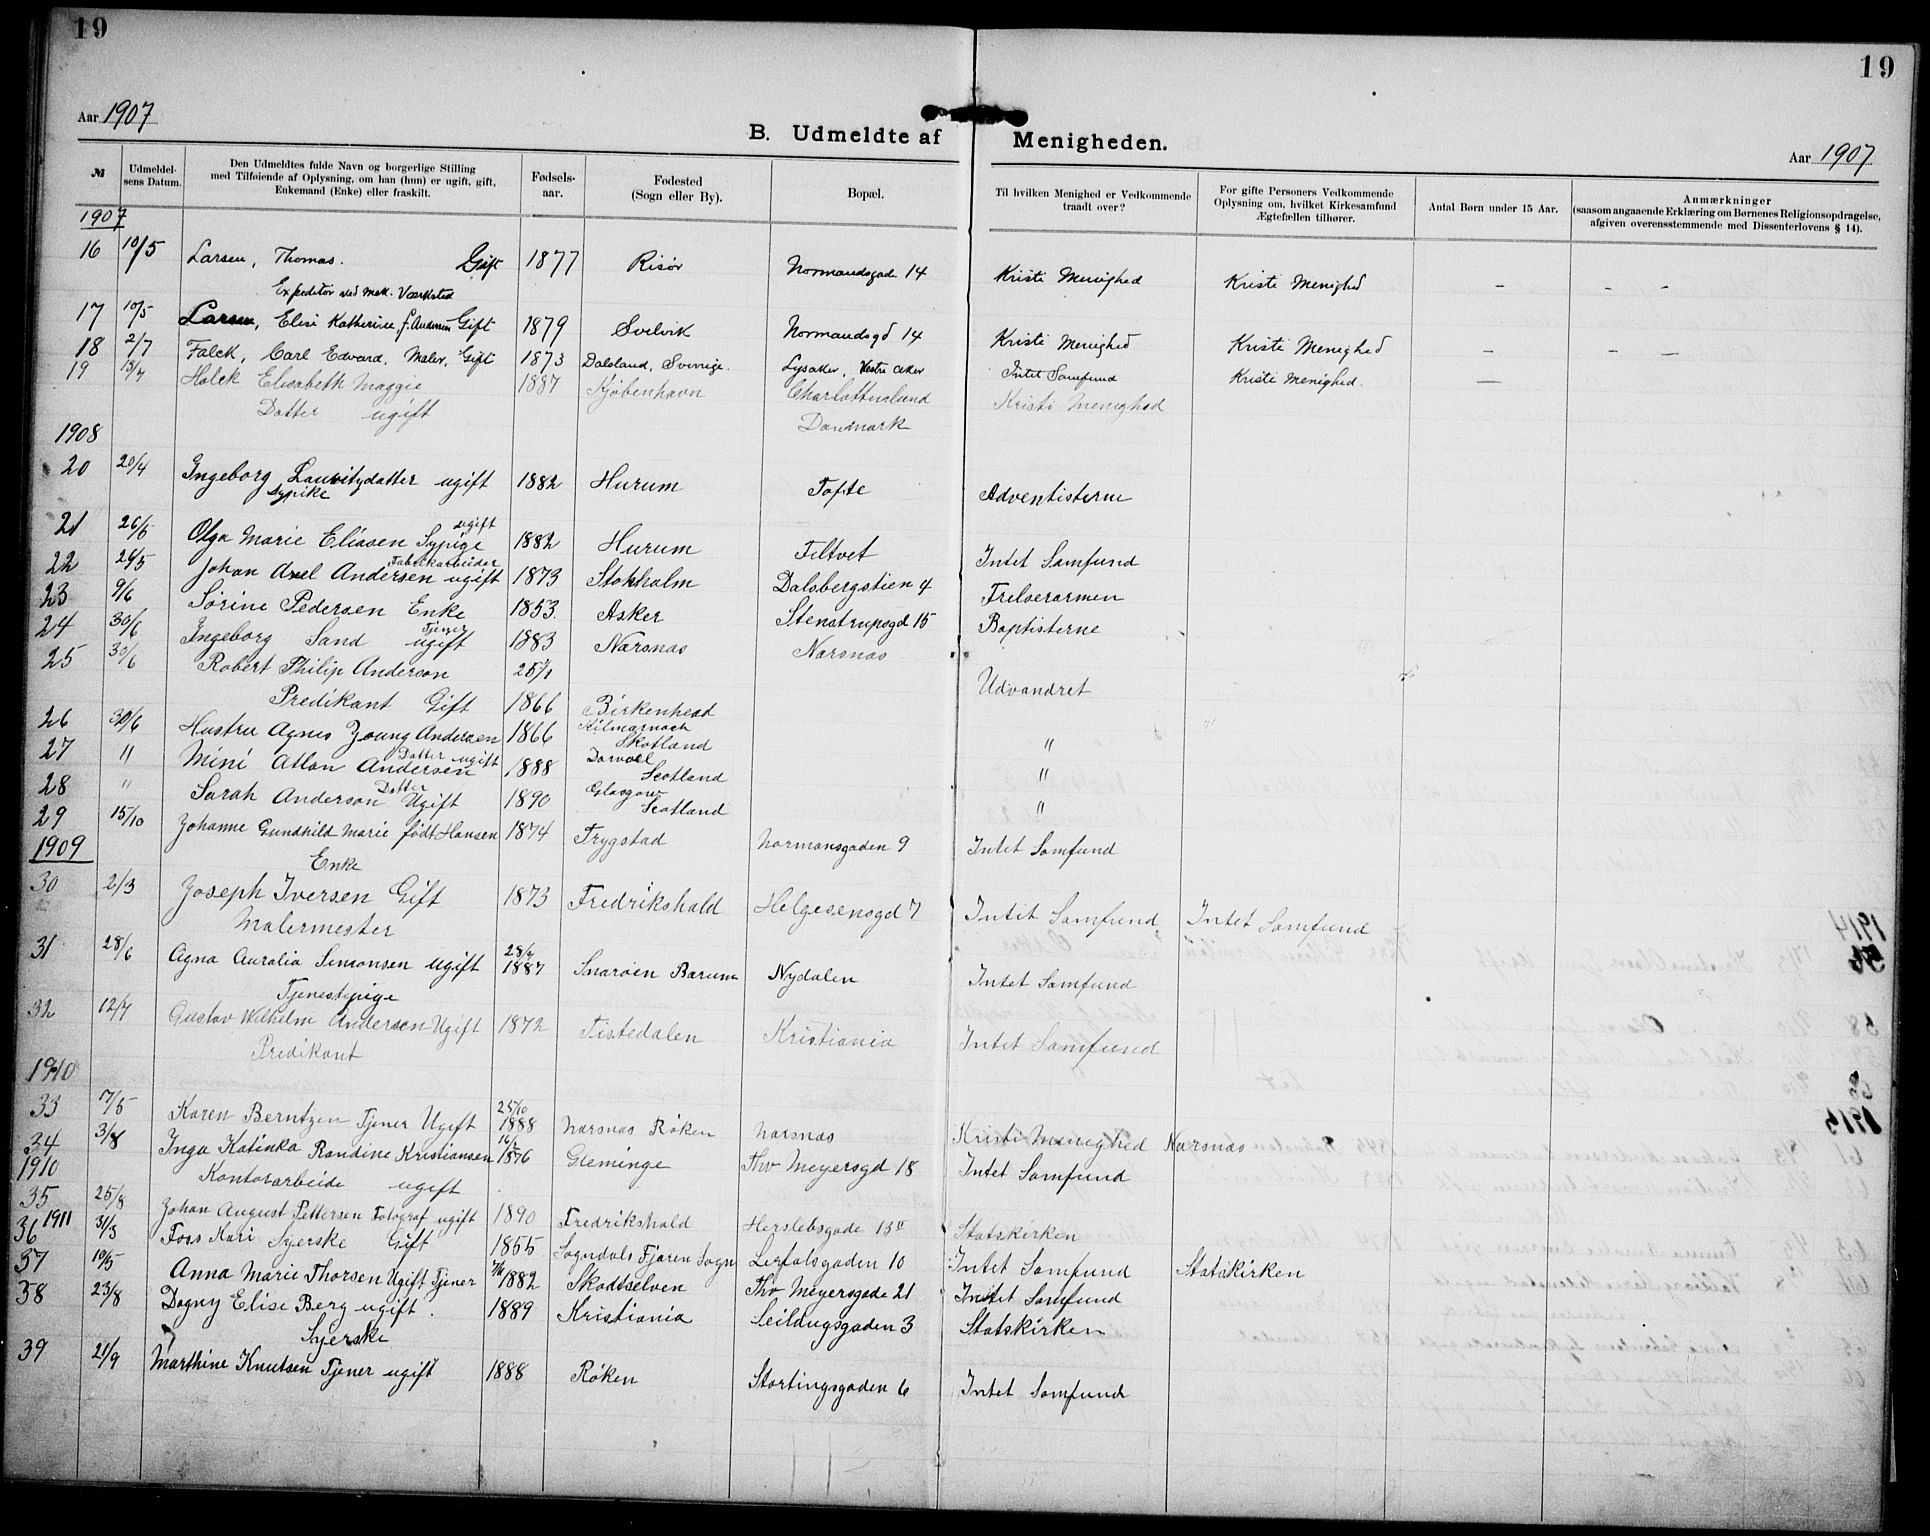 19
19
Aar 1907
B. Udmeldte af Menigheden.
Aar 1907
№ | Udmeldelsens Datum. | Den Udmeldtes fulde Navn og borgerlige Stilling med Tilføiende af Oplysning, om han (hun) er ugift, gift, Enkemand (Enke) eller fraskilt. | Fødselsaar. | Fødested (Sogn eller By). | Bopæl. | Til hvilken Menighed er Vedkommende traadt over? | For gifte Personers Vedkommende Oplysning om, hvilket Kirkesamfund Ægtefællen tilhører. | Antal Børn under 15 Aar. | Anmærkninger (saasom angaaende Erklæring om Børnenes Religionsopdragelse, afgiven overensstemmende med Dissenterlovens § 14).
1907
16 10/5 Larsen, Thomas. Gift 1877 Risør Normandsgade 14 Kristi Menighed Kristi Menighed — — —
Expeditør ved Mek. Værksted
17 10/5 Larsen, Elise Katherine, f. Andersen Gift 1879 Svelvik Normandsgd 14 Kristi Menighed Kristi Menighed — — —
18 2/7 Falck, Carl Edvard, Maler, Gift 1873 Dalsland, Sverrige. Lysaker, Vestre Aker Intet Samfund Kristi Menighed. —
19 13/7 Holck Elisabeth Maggie 1887 Kjøbenhavn Charlottenlund Kristi Menighed
Datter ugift Danmark
1908
20 20/4 Ingeborg Lauritzdatter ugift 1882 Hurum Tofte Adventisterne
Sypike
21 26/5 Olga Marie Eliasen Sypige ugift 1882 Hurum Filtvet Intet Samfund
22 29/5 Johan Axel Andersen Fabrikarbeider ugift 1873 Stokholm Dalsbergstien 4 Frelserarmen
23 9/6 Sørine Pedersen Enke 1853 Asker Stenstrupsgd 15 Baptisterne
24 30/6 Ingeborg Sand Tjener ugift 1883 Narsnæs Narsnæs
25 30/6 Robert Philip Anderson 25/1 Udvandret
Predikant Gift 1866 Birkenhead
26 30/6 Hustru Agnes Young Andersen 1866 Kilmarnoch Skotland "
27 " Mini Atlan Andersen Datter ugift 1888 Darvoel Scotland "
28 " Sarah Anderson Datter Ugift 1890 Glasgow Scotland "
29 15/10 Johanne Gundhild Marie født Hansen 1874 Trygstad Normansgaden 9 Intet Samfund
1909 Enke
30 2/3 Joseph Iversen Gift 1873 Fredrikshald Helgesensgd 7 Intet Samfund Intet Samfund
Malermester
31 28/6 Agna Auralia Simonsen ugift 1887 Snarøen Bærum Nydalen Intet Samfund
Tjenestepige
32 12/7 Gustav Wilhelm Andersen Ugift 1872 Tistedalen Kristiania Intet Samfund
Predikant
1910
33 17/5 Karen Berntzen Tjener Ugift 25/10 1888 Narsnæs Røken Narsnæs Kristi Menighed Narsnæs
34 3/8 Inga Katinka Randine Kristiansen 16/2 1876 Gleminge Thv Meyersgd 18 Intet Samfund
1910 Kontorarbeide ugift
35 25/8 Johan August Pettersen Fotograf ugift 1890 Fredrikshald Herslebsgade 13 Statskirken
36 1911 31/3 Foss Kari Syerske Gift 1855 Sogndals Fjæren Sogn Lerfalsgaden 10 Intet Samfund Statskirken
37 10/5 Anna Marie Thorsen Ugift Tjener 1882 Skodtselven Thv Meyersgade 21 Intet Samfund
38 23/8 Dagny Elise Berg ugift. 1889 Kristiania Seildugsgaden 3 Statskirken
Syerske
39 21/9 Marthine Knutsen Tjener ugift 1888 Røken Stortingsgaden 6 Intet Samfund